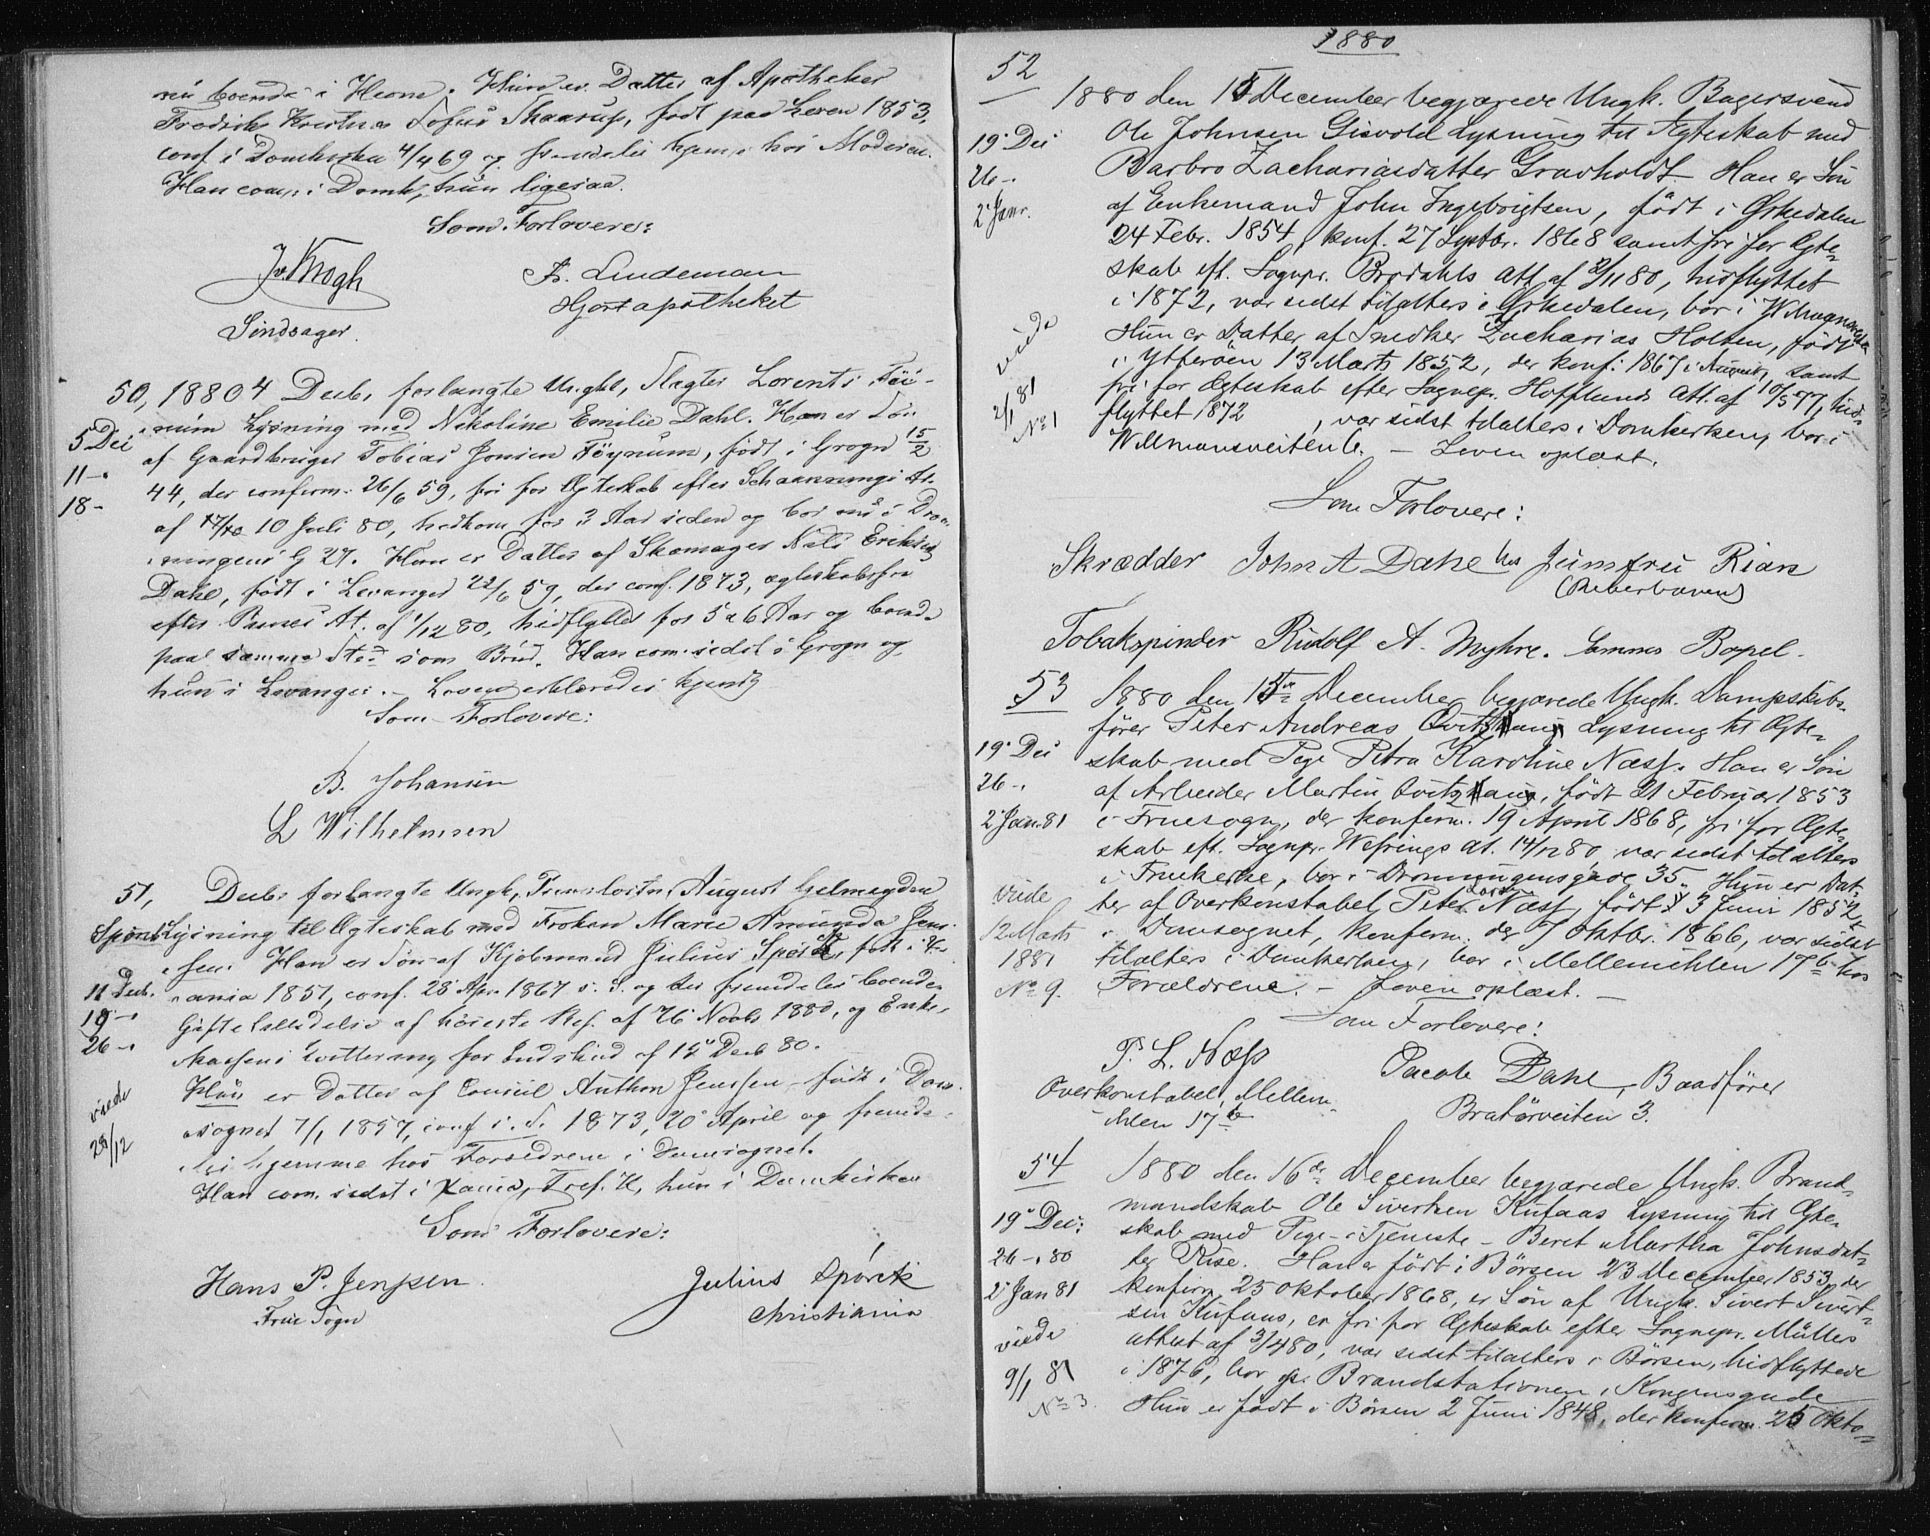 nu boende i Hevne. Hun er Datter af Apotheker
Fredrik Kristian Tofus Skaarup, født paa Leren 1853,
conf. i Domkirken 4/4 69 og fremdeles hjemme hos Moderen.
Han com. i Domk, hun ligesaa.
Som Forlovere:
J. Krogh
Fr. Lindeman
Hjortapotheket
50, 1880 4 Decb. forlangte Ungkl, Slagter Lorents Föi-
num Lysning med Nikoline Emilie Dahl. Han er Søn
5 Dec
af Gaardbruger Tobias Jonsen Föynum, født i Grogn 15/2
11 -
44, der confirm. 26/6 59, fri for Ægteskab efter Schaannings At.
18 -
af 10 Juli 80, hidkom for 3 Aar siden og bor nu i Dron-
ningens G 27. Hun er Datter af Skomager Nils Eriksen
Dahl, født i Levanger 22/6 59, der conf. 1873, ægteskabsfri
efter At. af 1/12 80, hidflyttet for 5 a 6 Aar og boende
paa samme Sted som Brud. Han com. sidst i Grogn og
hun i Levanger. - Loven erklæredes kjendt
Som Forlovere:
B. Johansen
L Wilhelmsen
51, Decbr forlangte Ungk, Prem.løitn August Gelmeyden
Spørck Lysning til Ægteskab med Frøken Marie Amunda Jens-
sen. Han er Søn af Kjøbmand Julius Spørck, født i X-
11 Decb.
ania 1851, conf. 28 Apr. 1867 s. S. og der fremdeles boende
19 -
Giftetilladelse af høieste Res. af 26 Novbr 1880, og Enke-
26 -
kassens Qvittering for Indskud af 15 Decb 80.
Hun er Datter af Consul Anthon Jenssen, født i Dom-
viede
sognet 7/1 1857, conf. i. S. 1873, 20 April og fremde-
29/12
les hjemme hos Forældrene i Domsognet.
Han com. sidst i Xania, Tref. K, hun i Domkirken
Som Forlovere:
Hans P. Jenssen.
Frue Sogn
Julius Spørck
Christiania
1880
52
1880 den 15 December begjærede Ungk. Bagersvend
19 Dec
Ole Johnsen Gisvold Lysning til Ægteskab med
26 -
Barbro Zachariasdatter Gravholdt. Han er Søn
2 Janr.
af Enkemand John Ingebrigtsen, født i Ørkedalen
24 Febr. 1854, konf. 27 Septbr. 1868 samt fri for Ægte-
skab eft. Sognpr. Brodahls Att. af 8/11 80, hidflyttet
i 1872, var sidst tilalters i Ørkedalen, bor i
viede
Hun er Datter af Snedker Zacharias Holten, født
i Ytterøen 13 Marts 1852, der konf. 1867 i August, samt
2/1 81
fri for Ægteskab efter Sognepr. Hofflunds Att. af 10/5 77, hid-
No 1
flyttet 1872 , var sidst tilalters i Domkirken, bor i
Willmansveiten 6. - Loven oplæst.
Som Forlovere:
Skrædder John A Dahl hos Jumfru Rian
(Reberbanen)
Tobakspinder Rudolf A. Myhre. Bopel.
53
1880 den 15de December begjærede Ungk. Dampskibs-
fører Peter Andreas Qvitzhaug Lysning til Ægte-
19 Dec
skab med Pige Petra Karoline Næss. Han er Søn
26 -
af Arbeider Martin Qvitzhaug, født 21 Februar 1853
2 Jan. 81
i Fruesogn, der konferm. 19 April 1868, fri for Ægte-
skab eft. Sognpr. Wefrings At. 14/12 80, var sidst tilalters
i Fruekirke, bor i Dronningensgade 35. Hun er Dat-
viede
ter af Overkonstabel Peter Næss, født 3 Juni 1852
12 Marts
i Domsognet, konferm. der 7 Oktbr. 1866, var sidst
1881
tilalters i Domkirken, bor i Mellemihlen 17b hos
No 9.
Forældrene. - Loven oplæst. -
Som Forlovere:
P. L. Næss
Overkonstabel, Mellem-
ihlen 17b
Jacob Dahl, Baadfører
Bratørveiten 3.
54
1880 den 16de December begjærede Ungk. Brand-
mandskab Ole Sivertsen Kufaas Lysning til Ægte-
19 Dec:
skab med Pige - i Tjeneste - Beret Martha Johnsdat-
26 - 80
ter Ruse. Han er født i Børsen 23 December 1853, der
2 Jan 81
konfirm. 25 Oktober 1868, er Søn af Ungk. Sivert Sivert-
sen Kufaas, er fri for Ægteskab efter Sognepr. Müllers
viede
Attest af 3/4 80, var sidst tilalters i Børsen, hidflyttede
9/1 81
i 1876, bor p. Brandstationen i Kongensgade
No 3.
Hun er født i Børsen 2 Juni 1848, der konferm. 25 Okto-